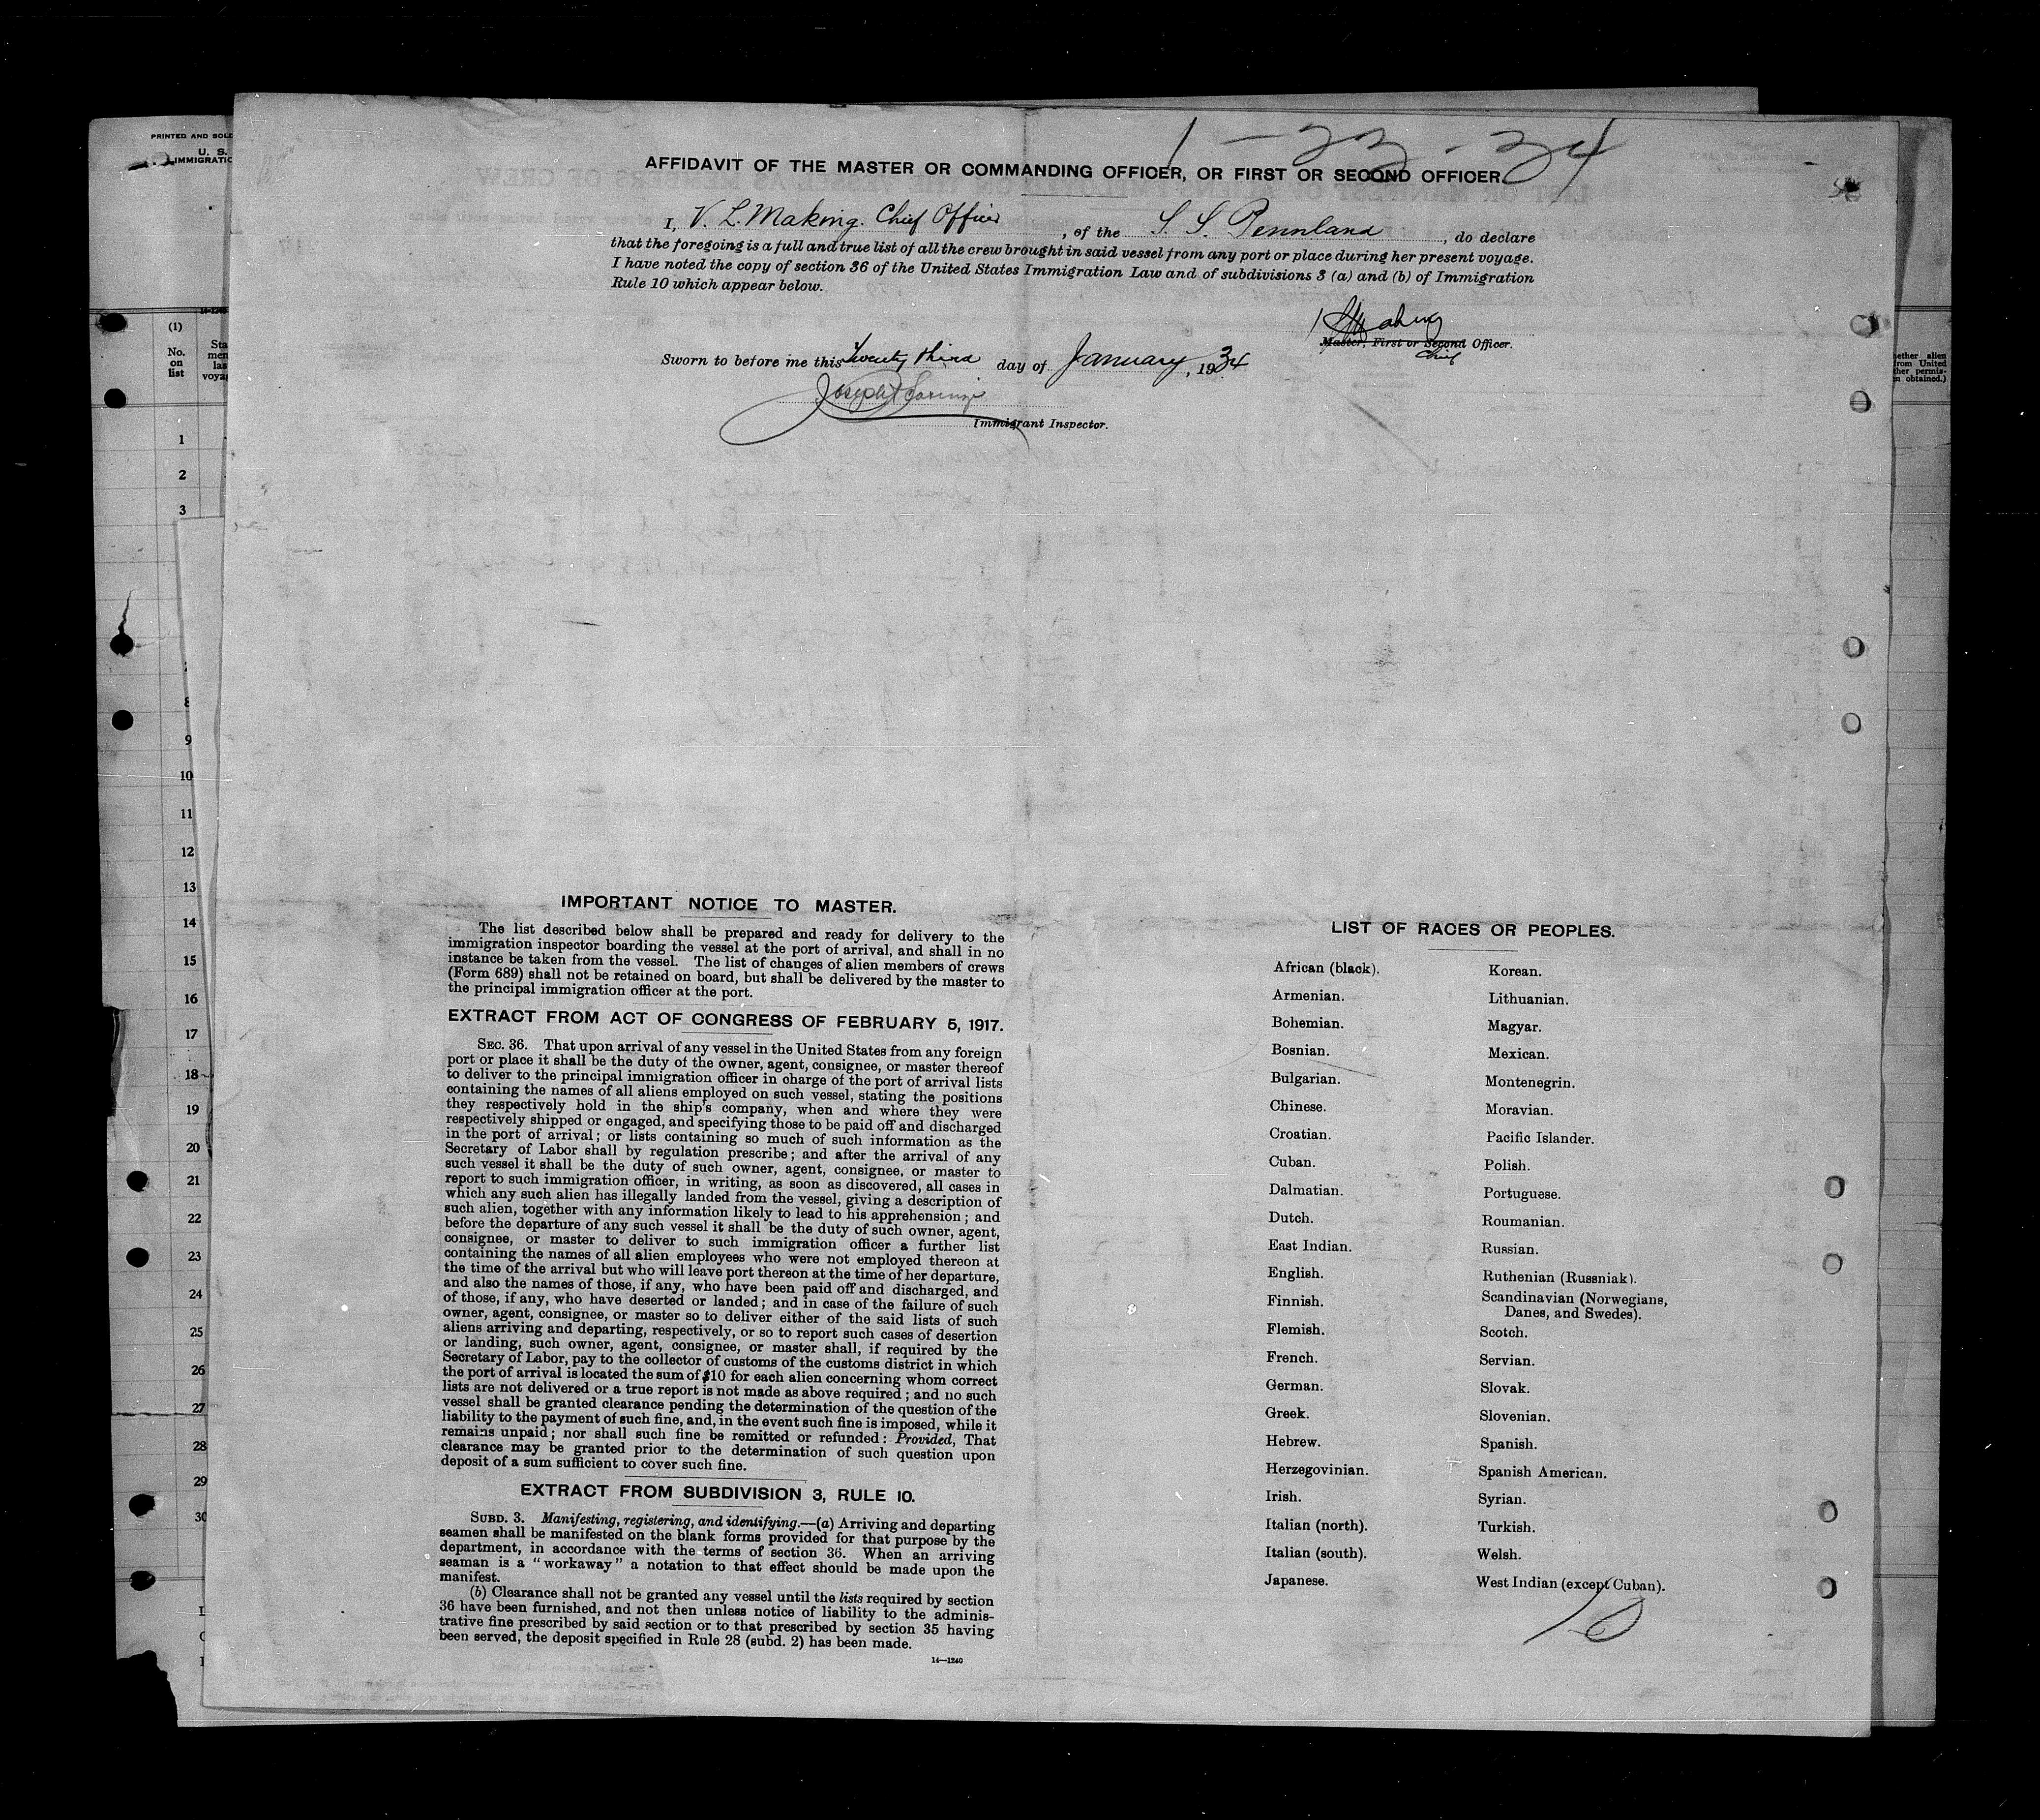 PRINTED AND SOLD
U. S.
IMMIGRATIO
1-23-34
AFFIDAVIT OF THE MASTER OR COMMANDING OFFICER, OR FIRST OR SECOND OFFICER
I, V. L. Making. Chief Officer, of the S. S. Pennland, do declare
that the foregoing is a full and true list of all the crew brought in said vessel from any port or place during her present voyage.
I have noted the copy of section 36 of the United States Immigration Law and of subdivisions 3 (a) and (b) of Immigration
Rule 10 which appear below.
Master, First or Second Officer.
Chief
Sworn to before me this twenty third day of January, 1934
Immigrant Inspector.
(1)
No.
on
list
Sta
men
las
voya
1
2
3
8
9
10
11
12
13
14
15
16
17
18
19
20
21
22
23
24
25
26
27
28
29
30
ether alien
from United
ther permis-
n obtained.)
IMPORTANT NOTICE TO MASTER.
The list described below shall be prepared and ready for delivery to the
immigration inspector boarding the vessel at the port of arrival, and shall in no
instance be taken from the vessel. The list of changes of alien members of crews
(Form 689) shall not be retained on board, but shall be delivered by the master to
the principal immigration officer at the port.
EXTRACT FROM ACT OF CONGRESS OF FEBRUARY 5, 1917.
SEC. 36. That upon arrival of any vessel in the United States from any foreign
port or place it shall be the duty of the owner, agent, consignee, or master thereof
to deliver to the principal immigration officer in charge of the port of arrival lists
containing the names of all aliens employed on such vessel, stating the positions
they respectively hold in the ship's company, when and where they were
respectively shipped or engaged, and specifying those to be paid off and discharged
in the port of arrival; or lists containing so much of such information as the
Secretary of Labor shall by regulation prescribe; and after the arrival of any
such vessel it shall be the duty of such owner, agent, consignee, or master to
report to such immigration officer, in writing, as soon as discovered, all cases in
which any such alien has illegally landed from the vessel, giving a description of
such alien, together with any information likely to lead to his apprehension; and
before the departure of any such vessel it shall be the duty of such owner, agent,
consignee, or master to deliver to such immigration officer a further list
containing the names of all alien employees who were not employed thereon at
the time of the arrival but who will leave port thereon at the time of her departure,
and also the names of those, if any, who have been paid off and discharged, and
of those, if any, who have deserted or landed; and in case of the failure of such
owner, agent, consignee, or master so to deliver either of the said lists of such
aliens arriving and departing, respectively, or so to report such cases of desertion
or landing, such owner, agent, consignee, or master shall, if required by the
Secretary of Labor, pay to the collector of customs of the customs district in which
the port of arrival is located the sum of $10 for each alien concerning whom correct
lists are not delivered or a true report is not made as above required; and no such
vessel shall be granted clearance pending the determination of the question of the
liability to the payment of such fine, and, in the event such fine is imposed, while it
remains unpaid; nor shall such fine be remitted or refunded: Provided, That
clearance may be granted prior to the determination of such question upon
deposit of a sum sufficient to cover such fine.
EXTRACT FROM SUBDIVISION 3, RULE 10.
SUBD. 3. Manifesting, registering, and identifying.—(a) Arriving and departing
seamen shall be manifested on the blank forms provided for that purpose by the
department, in accordance with the terms of section 36. When an arriving
seaman is a "workaway" a notation to that effect should be made upon the
manifest.
(b) Clearance shall not be granted any vessel until the lists required by section
36 have been furnished, and not then unless notice of liability to the adminis-
trative fine prescribed by said section or to that prescribed by section 35 having
been served, the deposit specified in Rule 28 (subd. 2) has been made.
14—1240
LIST OF RACES OR PEOPLES.
African (black).
Armenian.
Bohemian.
Bosnian.
Bulgarian.
Chinese.
Croatian.
Cuban.
Dalmatian.
Dutch.
East Indian.
English.
Finnish.
Flemish.
French.
German.
Greek.
Hebrew.
Herzegovinian.
Irish.
Italian (north).
Italian (south).
Japanese.
Korean.
Lithuanian.
Magyar.
Mexican.
Montenegrin.
Moravian.
Pacific Islander.
Polish.
Portuguese.
Roumanian.
Russian.
Ruthenian (Russniak).
Scandinavian (Norwegians,
Danes, and Swedes).
Scotch.
Servian.
Slovak.
Slovenian.
Spanish.
Spanish American.
Syrian.
Turkish.
Welsh.
West Indian (except Cuban).